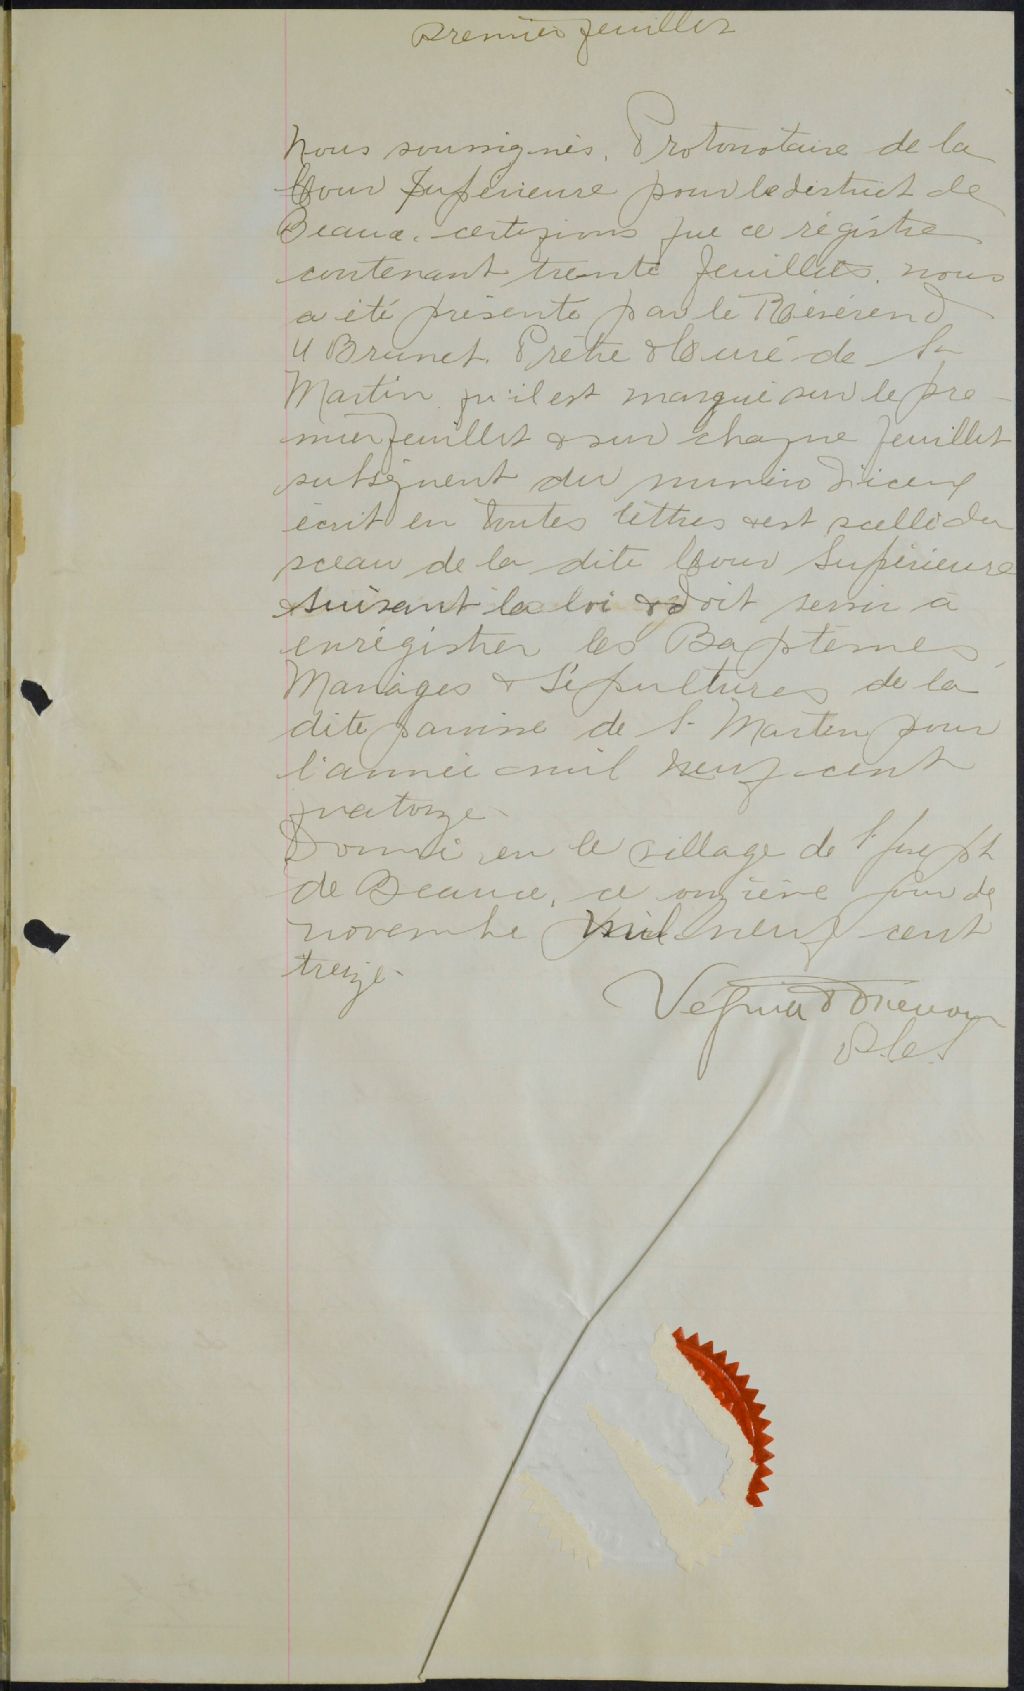 Premier feuillet
Nous soussignés, Protonotaire de la
Cour Supérieure pour le district de
Beauce, certifions que ce régistre
contenant trente feuillets, nous
a été présenté par le Révérend
U Brunet, Prêtre & Curé de St
Martin qu'il est marqué sur le pre-
mier feuillet & sur chaque feuillet
subséquent du numéro d'iceux
écrit en toutes lettres & est scellé du
sceau de la dite Cour Supérieure
suivant la loi & doit servir à
enrégistrer les Baptêmes,
Mariages & Sépultures de la
dite paroisse de St Martin pour
l'année mil neuf cent
quatorze.
Donné en le village de St Joseph
de Beauce, ce onzième jour de
novembre mil neuf cent
treize.
Vézina &
P.C.S